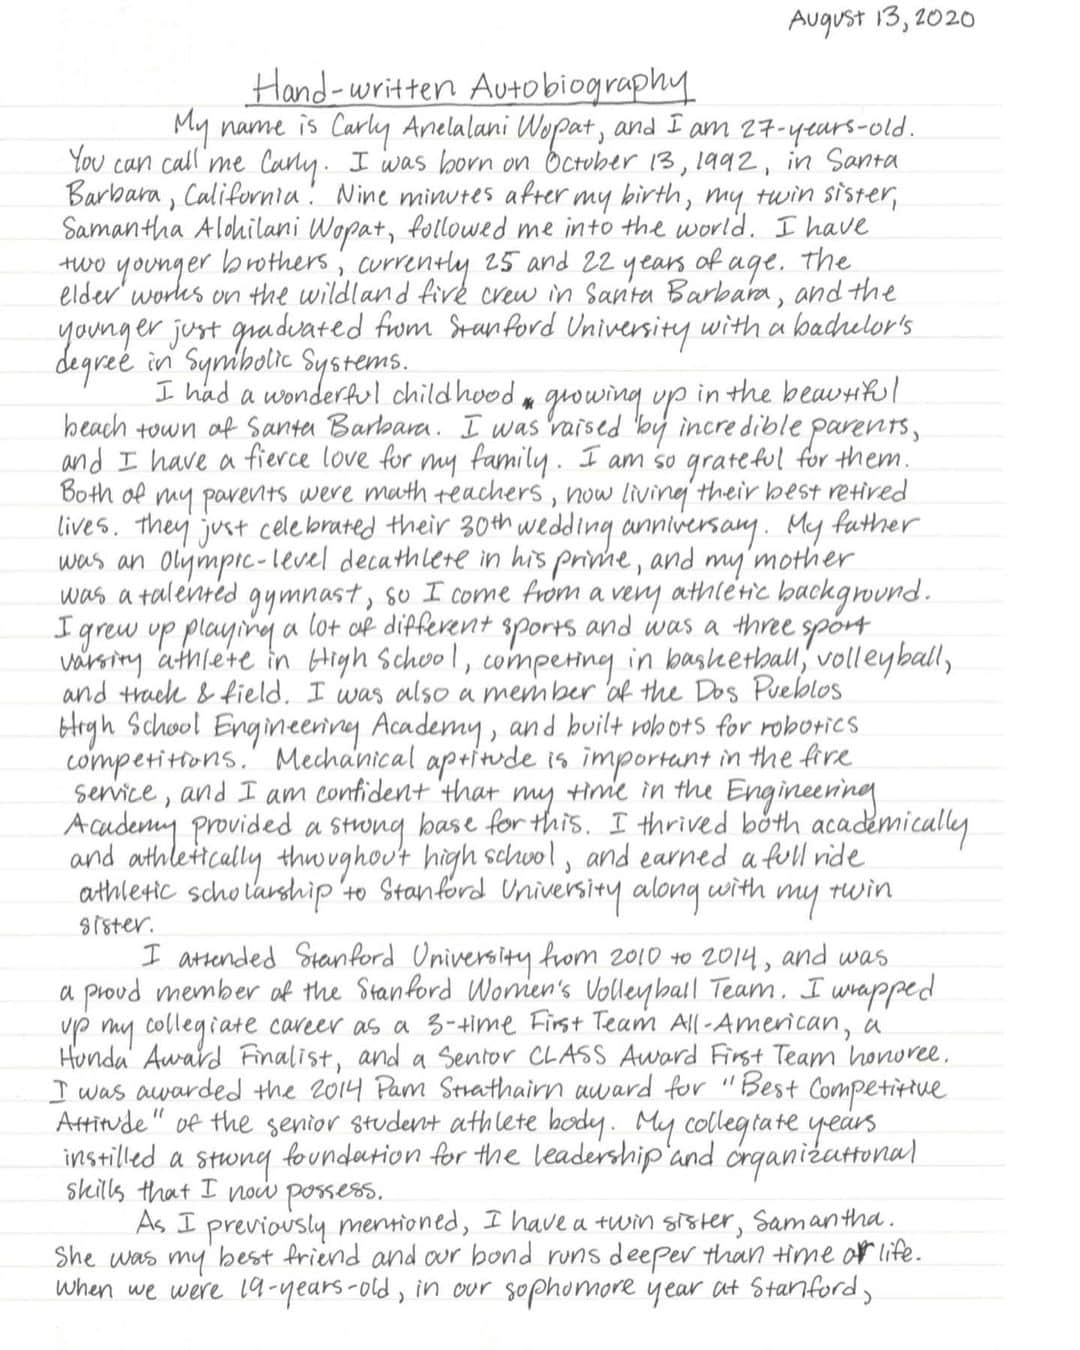 August 13, 2020
Hand-written Autobiography
My name is Carly Anelalani Wopat, and I am 27-years-old.
You can call me Carly. I was born on October 13, 1992, in Santa
Barbara, California. Nine minutes after my birth, my twin sister,
Samantha Alohilani Wopat, followed me into the world. I have
two younger brothers, currently 25 and 22 years of age. The
elder works on the wildland fire crew in Santa Barbara, and the
younger just graduated from Stanford University with a bachelor's
degree in Symbolic Systems.
I had a wonderful childhood growing up in the beautiful
beach town of Santa Barbara. I was raised by incredible parents,
and I have a fierce love for my family. I am so grateful for them.
Both of my parents were math teachers, now living their best retired
lives. They just celebrated their 30th wedding anniversary. My father
was an Olympic-level decathlete in his prime, and my mother
was a talented gymnast, so I come from a very athletic background.
I grew up playing a lot of different sports and was a three sport
varsity athlete in High School, competing in basketball, volleyball,
and track & field. I was also a member of the Dos Pueblos
High School Engineering Academy, and built robots for robotics
competitions. Mechanical aptitude is important in the fire
service, and I am confident that my time in the Engineering
Academy provided a strong base for this. I thrived both academically
and athletically throughout high school, and earned a full ride
athletic scholarship to Stanford University along with my twin
sister.
I attended Stanford University from 2010 to 2014, and was
a proud member of the Stanford Women's Volleyball Team. I wrapped
up my collegiate career as a 3-time First Team All-American, a
Honda Award Finalist, and a Senior CLASS Award First Team honoree.
I was awarded the 2014 Pam Strathairn award for "Best Competitive
Attitude" of the senior student athlete body. My collegiate years
instilled a strong foundation for the leadership and organizational
skills that I now possess.
As I previously mentioned, I have a twin sister, Samantha.
She was my best friend and our bond runs deeper than time or life.
When we were 19-years-old, in our sophomore year at Stanford,